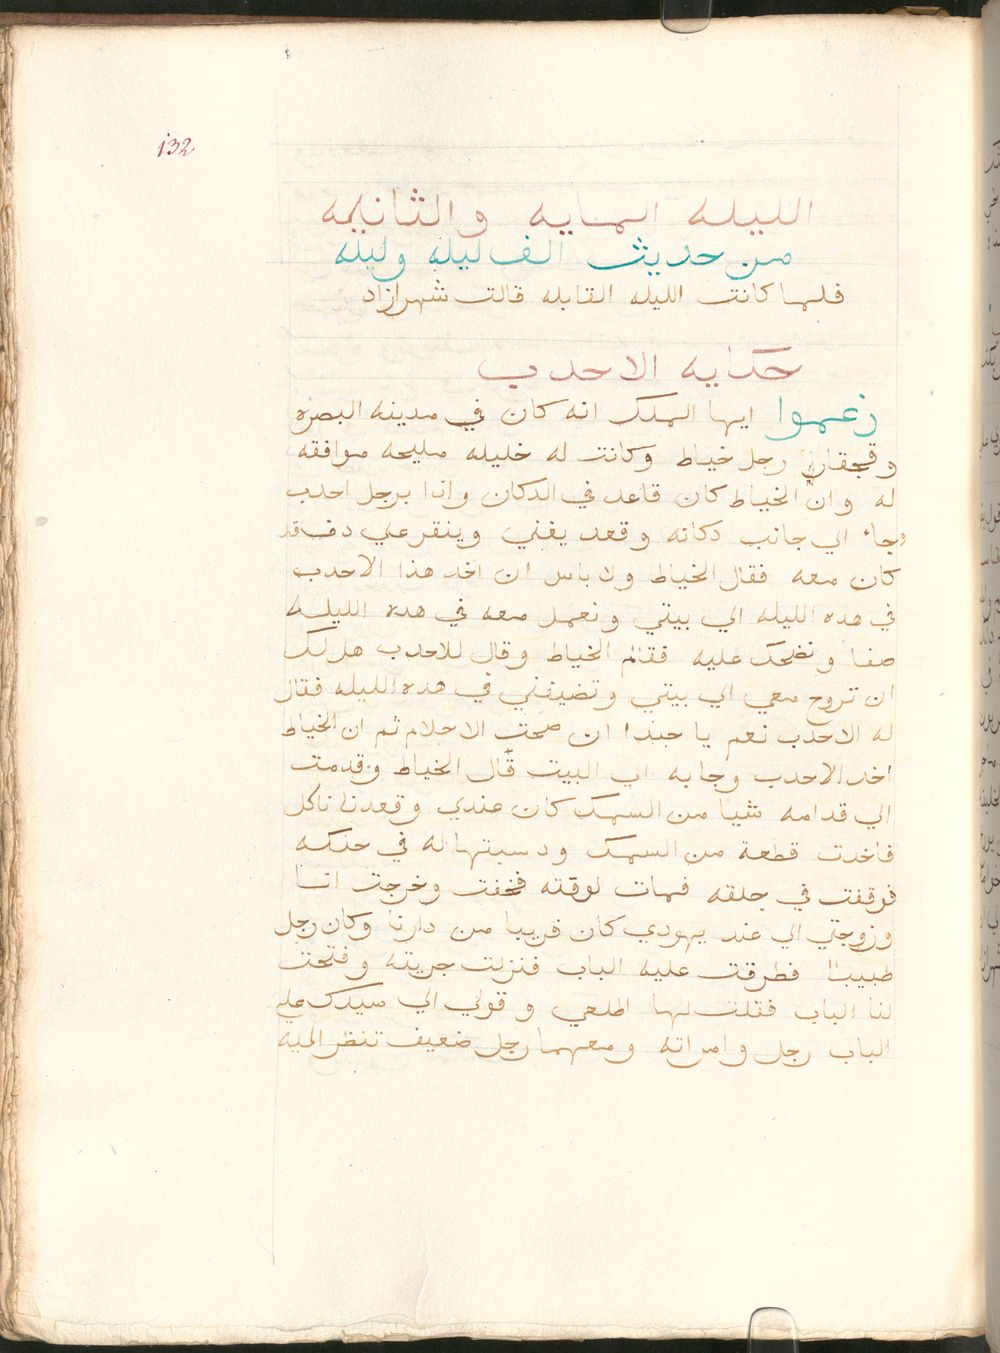 132
الليله المايه والثانيه
من حديث الف ليله وليله
فلما كانت الليله القابله قالت شهرازاد
حكايه الاحدب
زعموا ايها الملك انه كان في مدينه البصره
وقجقار رجل خياط وكانت له خليله مليحه موافقه
له وان الخياط كان قاعد في الدكان واذا برجل احدب
وجاء الي جانب دكانه وقعد يغني وينقر علي دف قد
كان معه فقال الخياط ولا باس ان اخد هذا الاحدب
في هده الليله الي بيتي ونعمل معه في هده الليله
صفا ونضحك عليه فقام الخياط وقال للاحدب هل لك
ان تروح معي الي بيتي وتضيفني في هده الليله فقال
له الاحدب نعم يا حبدا ان صحت الاحلام ثم ان الخياط
اخد الاحدب وجابه الي البيت قال الخياط وقدمت
الي قدامه شيا من السمك كان عندي وقعدنا ناكل
فاخدت قطعة من السمك ودسيتها له في حنكه
فوقفت في حلقه فمات لوقته فخفت وخرجت انا
وزوجتي الي عند يهودي كان قريبا من دارنا وكان رجل
طبيب فطرقت عليه الباب فنزلت جريته وفتحت
لنا الباب فقلت لها اطلعي وقولي الي سيدك علي
الباب رجل وامراته ومعهما رجل ضعيف تنظر اليه